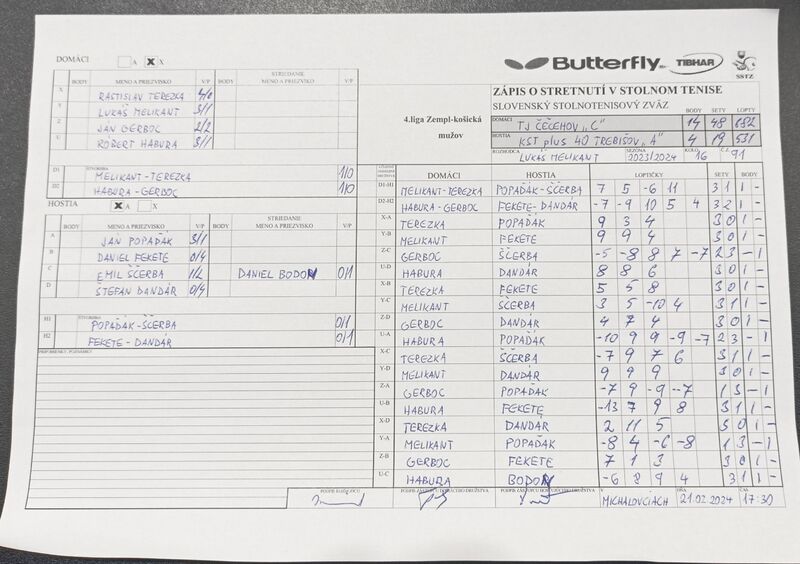 DOMÁCI A X X
Butterfly TIBHAR SSTZ
BODY MENO A PRIEZVISKO V/P BODY STRIEDANIE MENO A PRIEZVISKO V/P
X RASTISLAV TEREZKA 4/0
Y LUKÁŠ MELIKANT 3/1
Z JAN GERBOC 2/2
U ROBERT HABURA 3/1
D1 ŠTVORHRA MELIKANT-TEREZKA 1/0
D2 HABURA-GERBOC 1/0
HOSTIA X A X
BODY MENO A PRIEZVISKO V/P BODY STRIEDANIE MENO A PRIEZVISKO V/P
A JAN POPAĎÁK 3/1
B DANIEL FEKETE 0/4
C EMIL ŠČERBA 1/2 DANIEL BODON 0/1
D ŠTEFAN DANDÁR 0/4
H1 ŠTVORHRA POPAĎÁK-ŠČERBA 0/1
H2 FEKETE-DANDÁR 0/1
PRIPOMIENKY, POZNÁMKY
4.liga Zempl-košická mužov
ZÁPIS O STRETNUTÍ V STOLNOM TENISE
SLOVENSKÝ STOLNOTENISOVÝ ZVÄZ
BODY SETY LOPTY
DOMÁCI TJ ČEČEHOV „C" 14 48 682
HOSTIA KST plus 40 TREBIŠOV „A" 4 19 531
ROZHODCA LUKÁŠ MELIKANT SEZÓNA 2023/2024 KOLO 16 Č.Z. 91
DOMÁCI HOSTIA LOPTIČKY SETY BODY
D1-H1 MELIKANT-TEREZKA POPAĎÁK-ŠČERBA 7 5 -6 11 3 1 1 -
D2-H2 HABURA-GERBOC FEKETE-DANDÁR -7 -9 10 5 4 3 2 1 -
X-A TEREZKA POPAĎÁK 9 3 4 3 0 1 -
Y-B MELIKANT FEKETE 9 9 4 3 0 1 -
Z-C GERBOC ŠČERBA -5 -8 8 7 -7 2 3 - 1
U-D HABURA DANDÁR 8 8 6 3 0 1 -
X-B TEREZKA FEKETE 5 5 8 3 0 1 -
Y-C MELIKANT ŠČERBA 3 5 -10 4 3 1 1 -
Z-D GERBOC DANDÁR 4 7 4 3 0 1 -
U-A HABURA POPAĎÁK -10 9 9 -9 -7 2 3 - 1
X-C TEREZKA ŠČERBA -7 9 7 6 3 1 1 -
Y-D MELIKANT DANDÁR 9 9 9 3 0 1 -
Z-A GERBOC POPAĎÁK -7 9 -9 -7 1 3 - 1
U-B HABURA FEKETE -13 7 9 8 3 1 1 -
X-D TEREZKA DANDÁR 2 11 5 3 0 1 -
Y-A MELIKANT POPAĎÁK -8 4 -6 -8 1 3 - 1
Z-B GERBOC FEKETE 7 1 3 3 0 1 -
U-C HABURA BODON -6 8 9 4 3 1 1 -
PODPIS ROZHODCU PODPIS ZÁSTUPCU DOMÁCEHO DRUŽSTVA PODPIS ZÁSTUPCU HOSŤUJÚCEHO DRUŽSTVA V MICHALOVCIACH DŇA 21.02.2024 ČAS 17:30